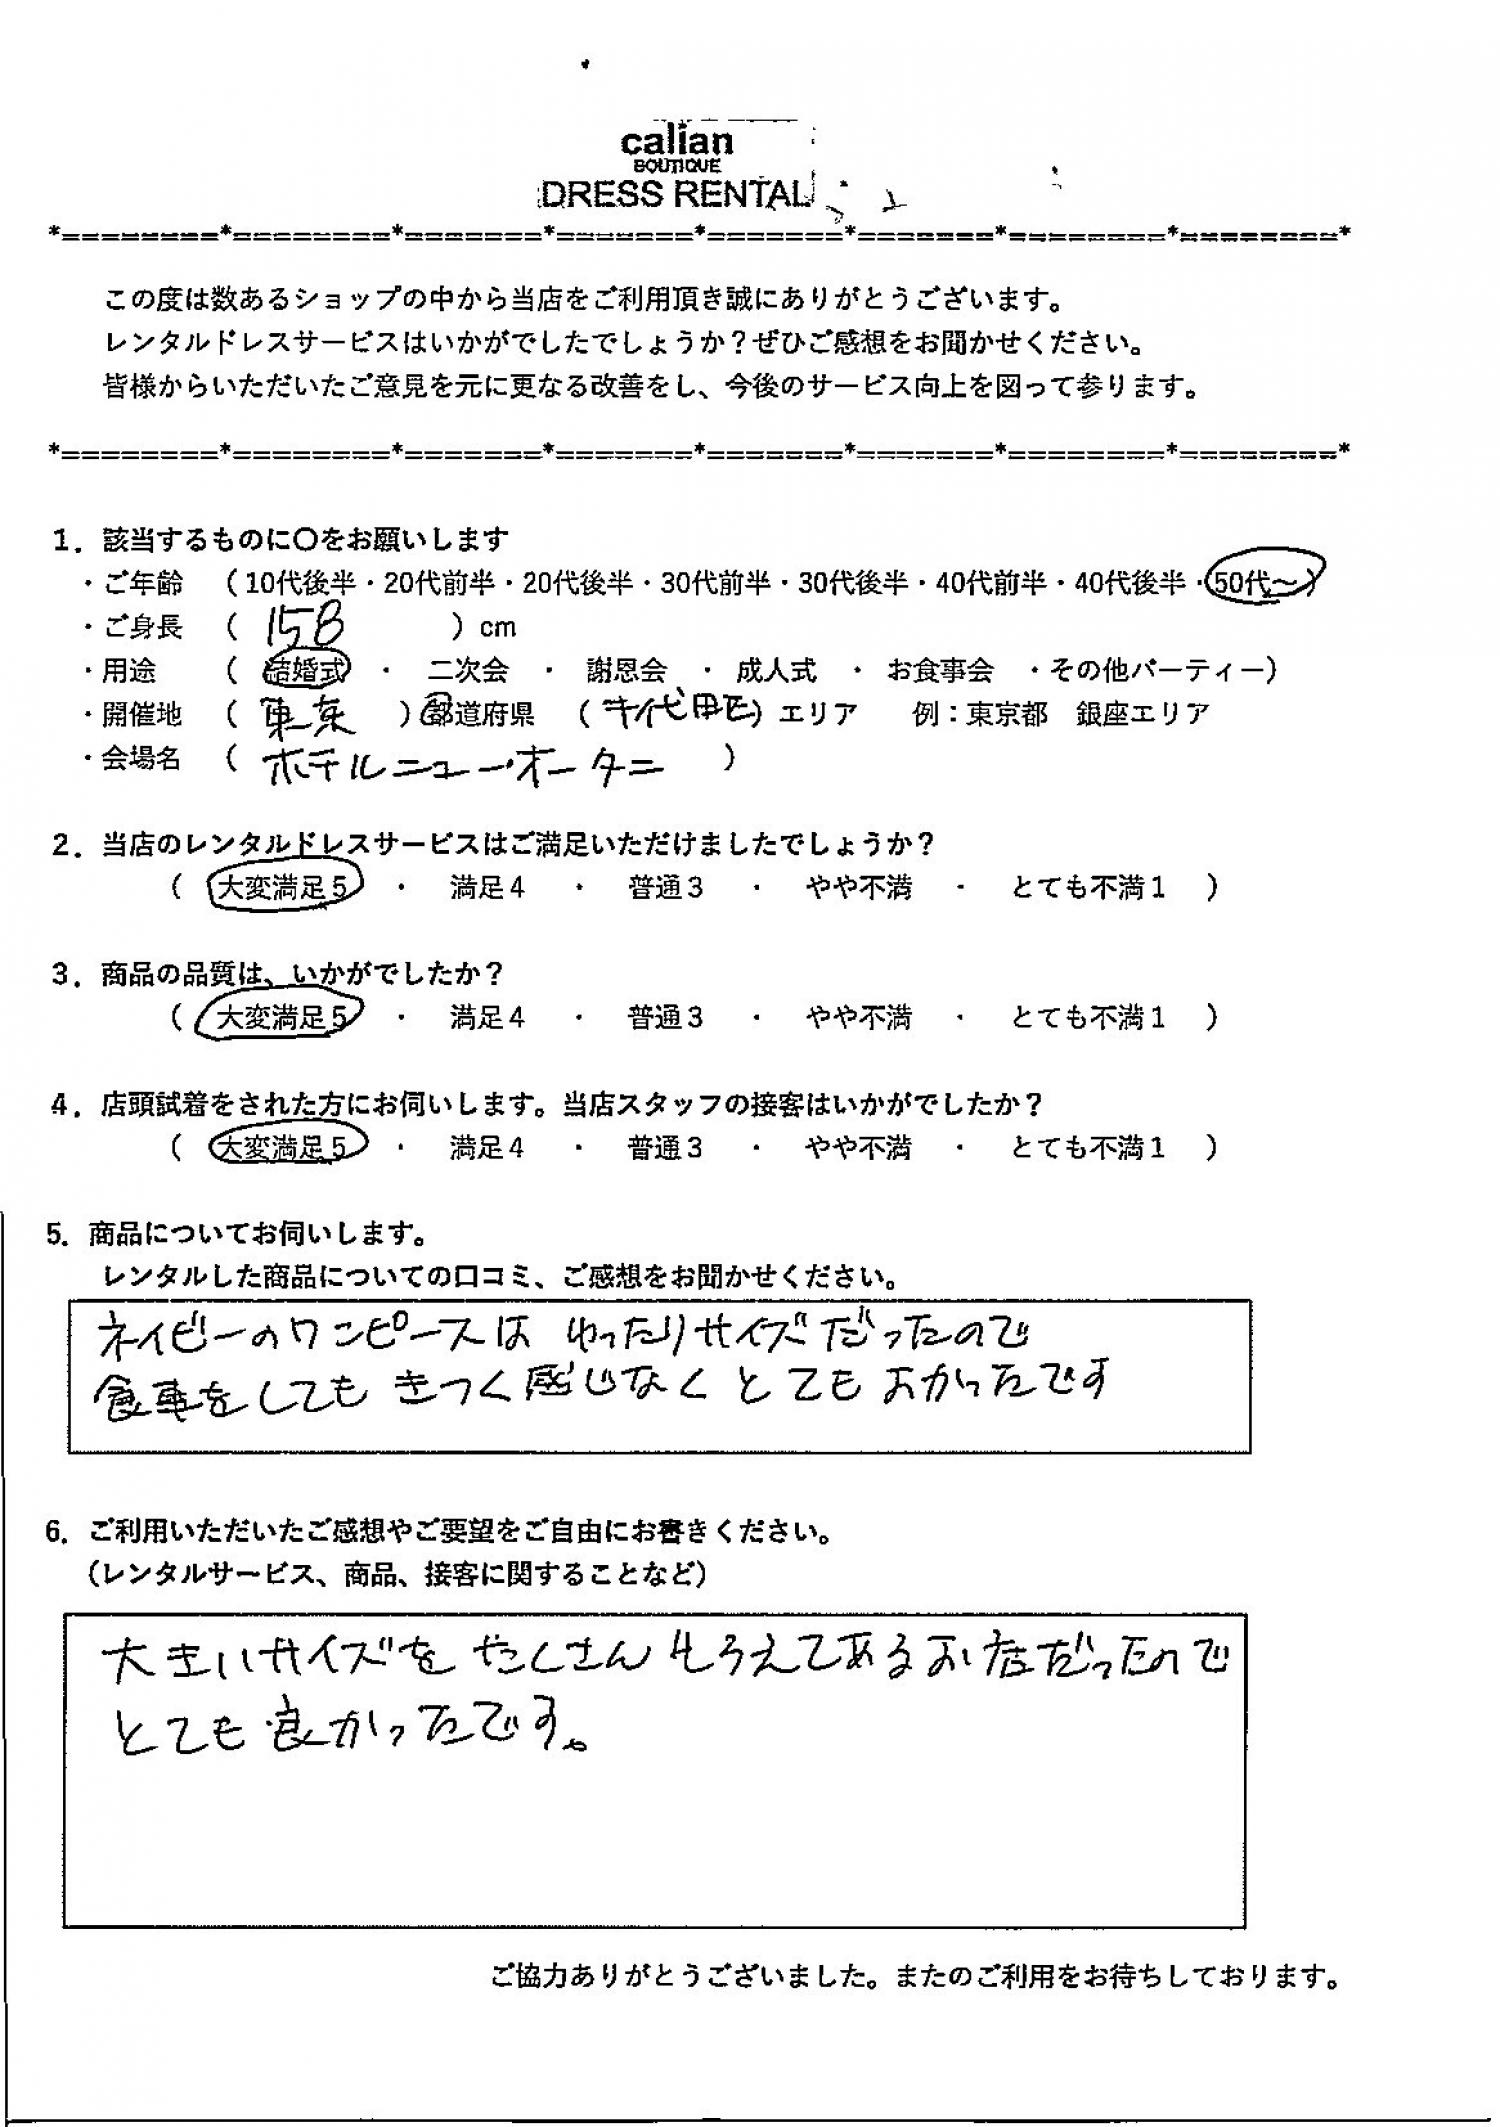 calian
BOUTIQUE
DRESS RENTAL
*========*========*=======*=======*=======*=======*========*========*
この度は数あるショップの中から当店をご利用頂き誠にありがとうございます。
レンタルドレスサービスはいかがでしたでしょうか？ぜひご感想をお聞かせください。
皆様からいただいたご意見を元に更なる改善をし、今後のサービス向上を図って参ります。
*========*========*=======*=======*=======*=======*========*========*
1．該当するものに〇をお願いします
・ご年齢 （10代後半・20代前半・20代後半・30代前半・30代後半・40代前半・40代後半・50代～）
・ご身長 （ 158 ）cm
・用途 （ 結婚式 ・ 二次会 ・ 謝恩会 ・ 成人式 ・ お食事会 ・その他パーティー）
・開催地 （ 東京 ）都道府県 （ 千代田区）エリア 例：東京都 銀座エリア
・会場名 （ ホテルニューオータニ ）
2．当店のレンタルドレスサービスはご満足いただけましたでしょうか？
（ 大変満足5 ・ 満足4 ・ 普通3 ・ やや不満 ・ とても不満1 ）
3．商品の品質は、いかがでしたか？
（ 大変満足5 ・ 満足4 ・ 普通3 ・ やや不満 ・ とても不満1 ）
4．店頭試着をされた方にお伺いします。当店スタッフの接客はいかがでしたか？
（ 大変満足5 ・ 満足4 ・ 普通3 ・ やや不満 ・ とても不満1 ）
5．商品についてお伺いします。
レンタルした商品についての口コミ、ご感想をお聞かせください。
ネイビーのワンピースは ゆったりサイズだったので
食事をしても きつく感じなく とても よかったです
6．ご利用いただいたご感想やご要望をご自由にお書きください。
（レンタルサービス、商品、接客に関することなど）
大きいサイズを たくさん そろえてあるお店だったので
とても 良かったです。
ご協力ありがとうございました。またのご利用をお待ちしております。